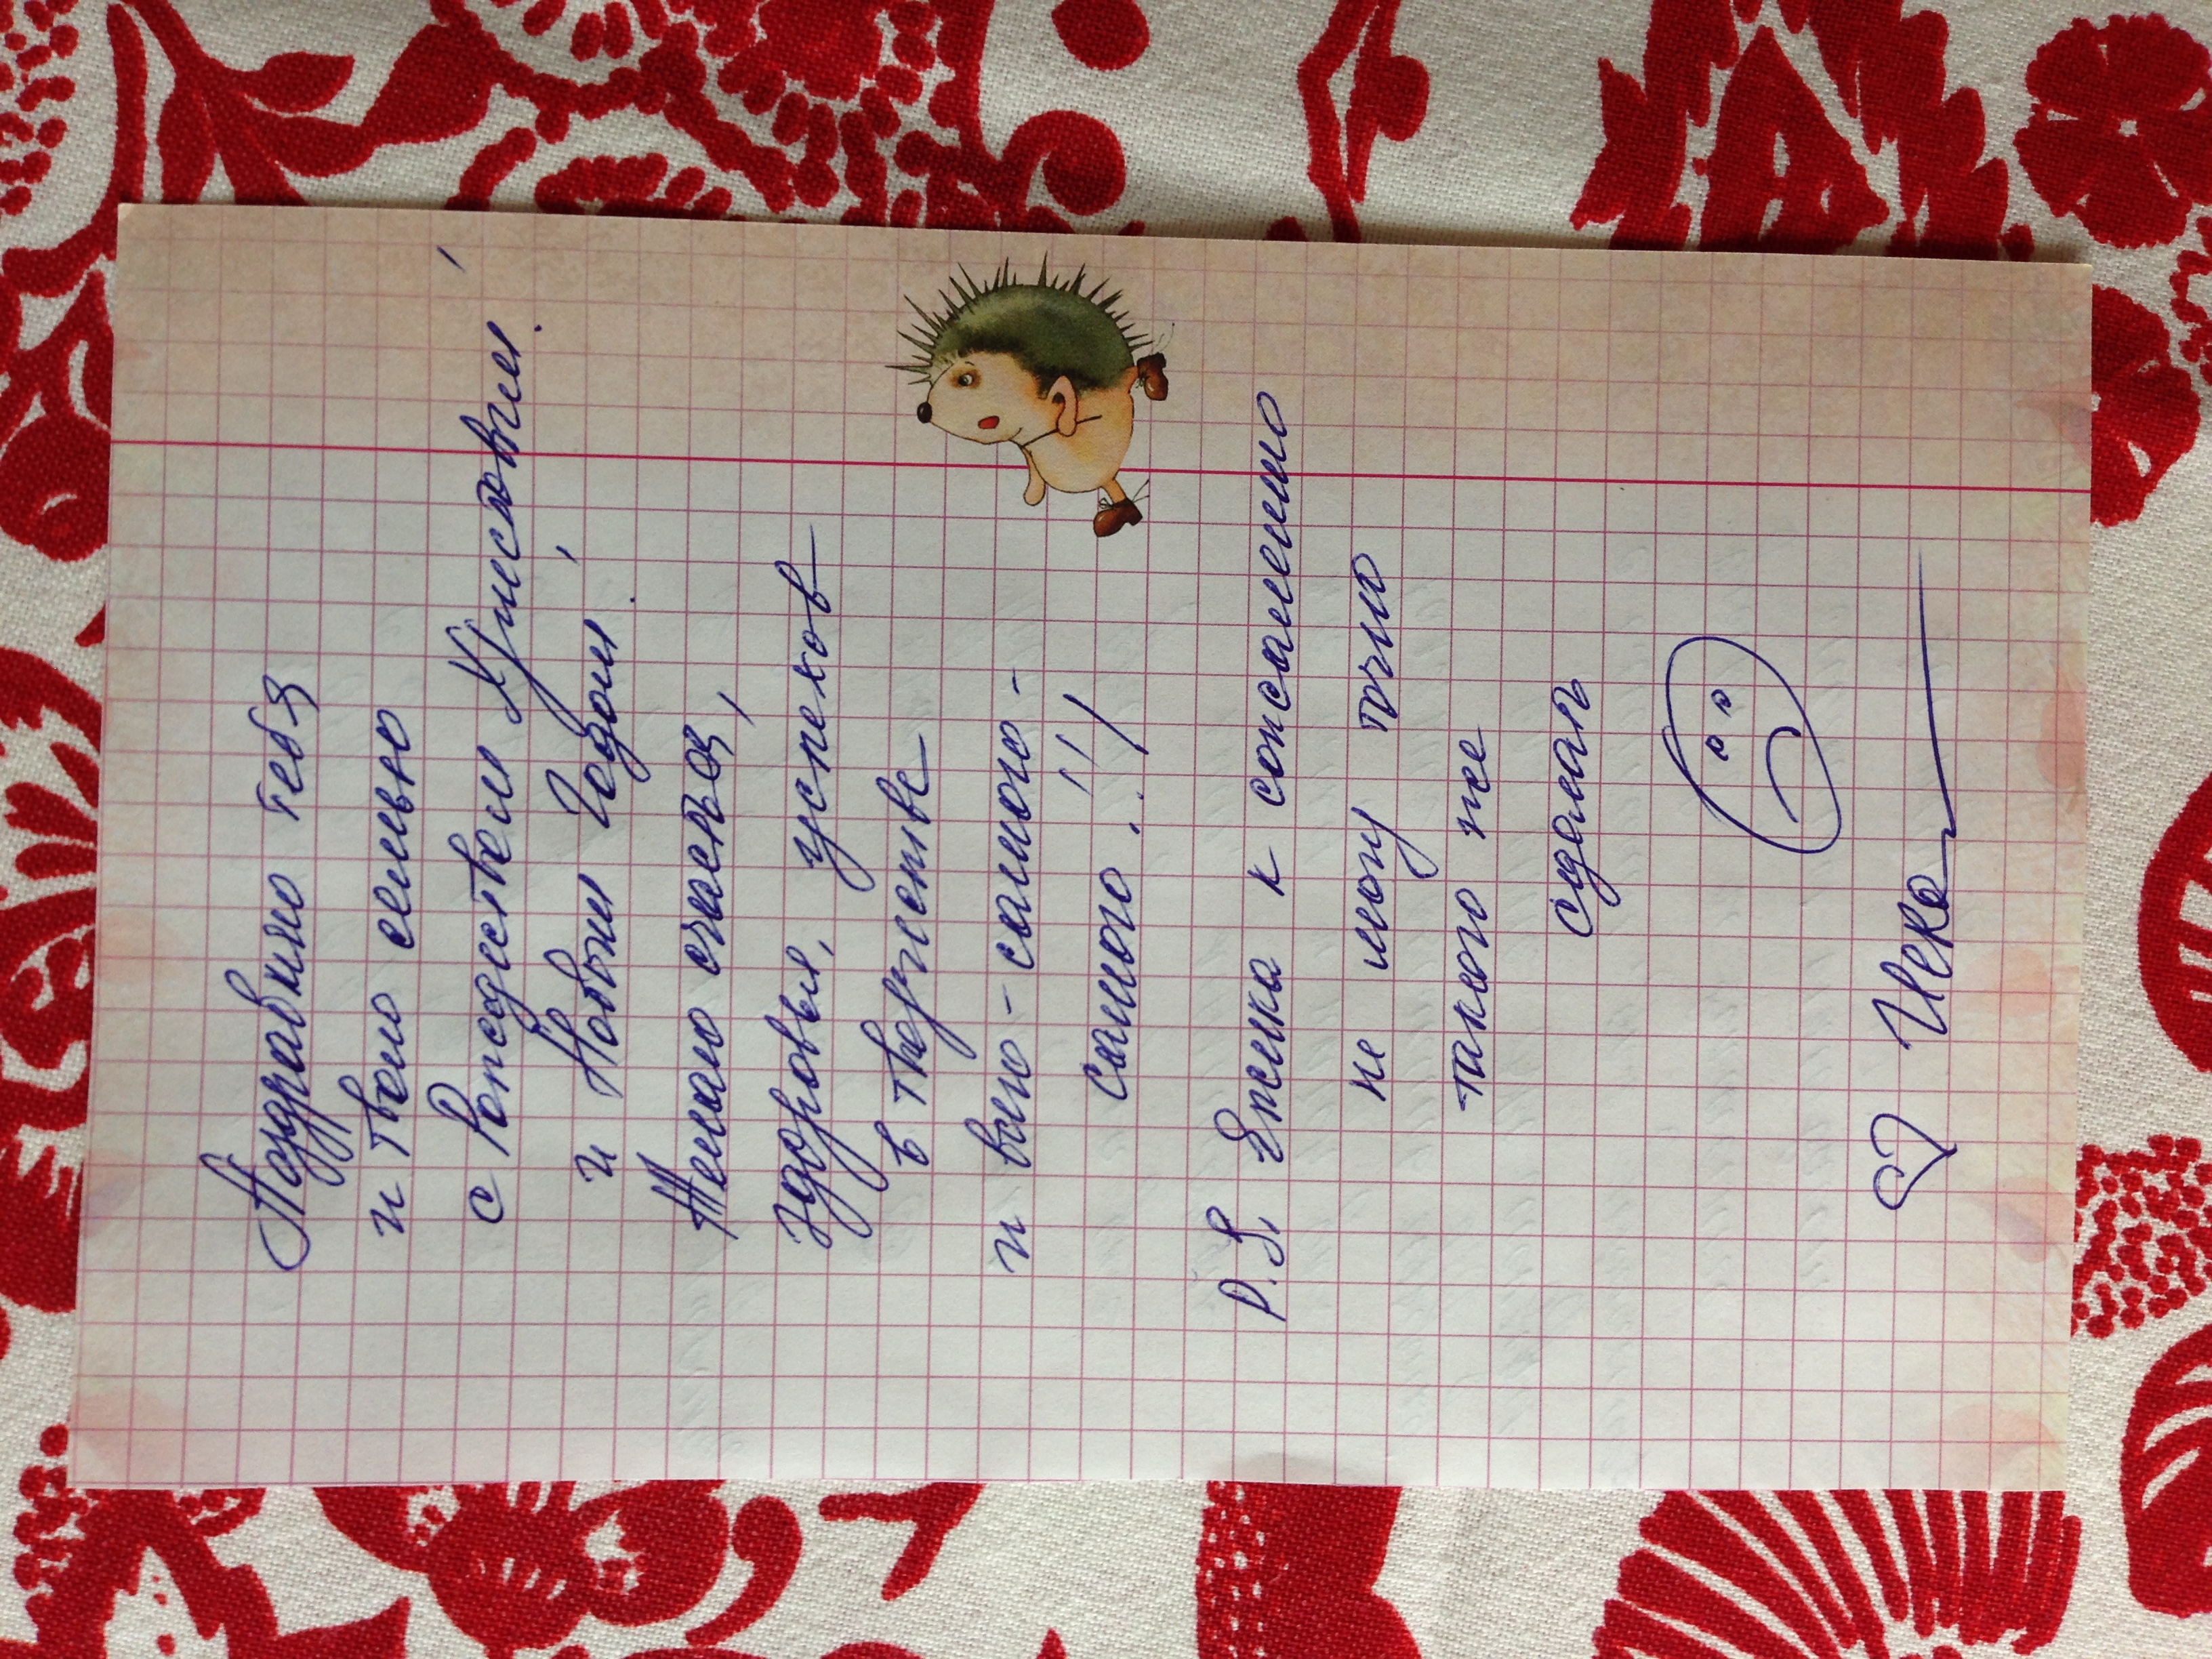 Поздравляю тебя
и твою семью
с Рождеством Христовым!
и Новым Годом!
Желаю счастья,
здоровья, успехов
в творчестве
и всего-самого-
самого...!!!
P.S. Ежика к сожалению
не могу точно
такого же
сделать